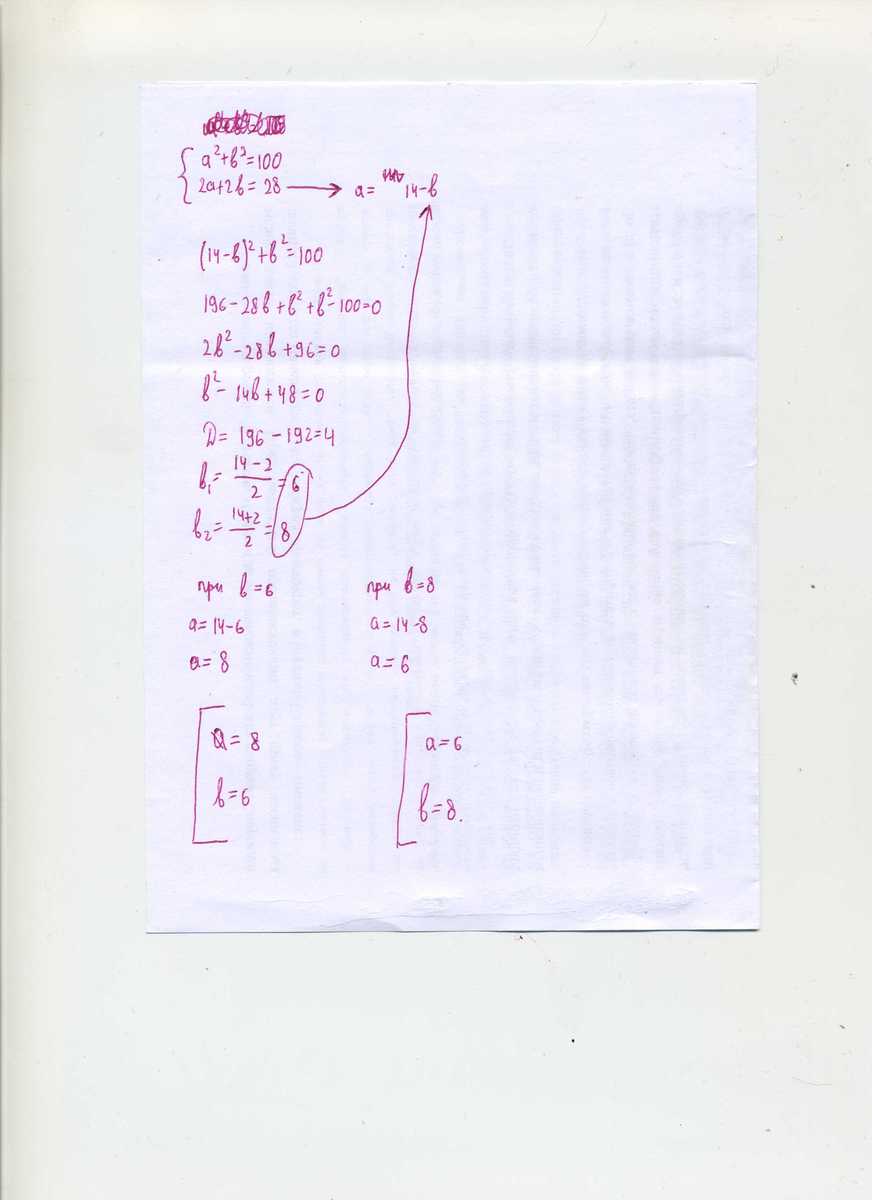 a²+b²=100
2a+2b=28 → a= 14-b
(14-b)²+b²=100
196-28b+b²+b²-100=0
2b²-28b+96=0
b²-14b+48=0
D= 196-192=4
b₁= 14-2/2 = 6
b₂= 14+2/2 = 8
при b=6 при b=8
a=14-6 a=14-8
a=8 a=6
a=8 a=6
b=6 b=8.